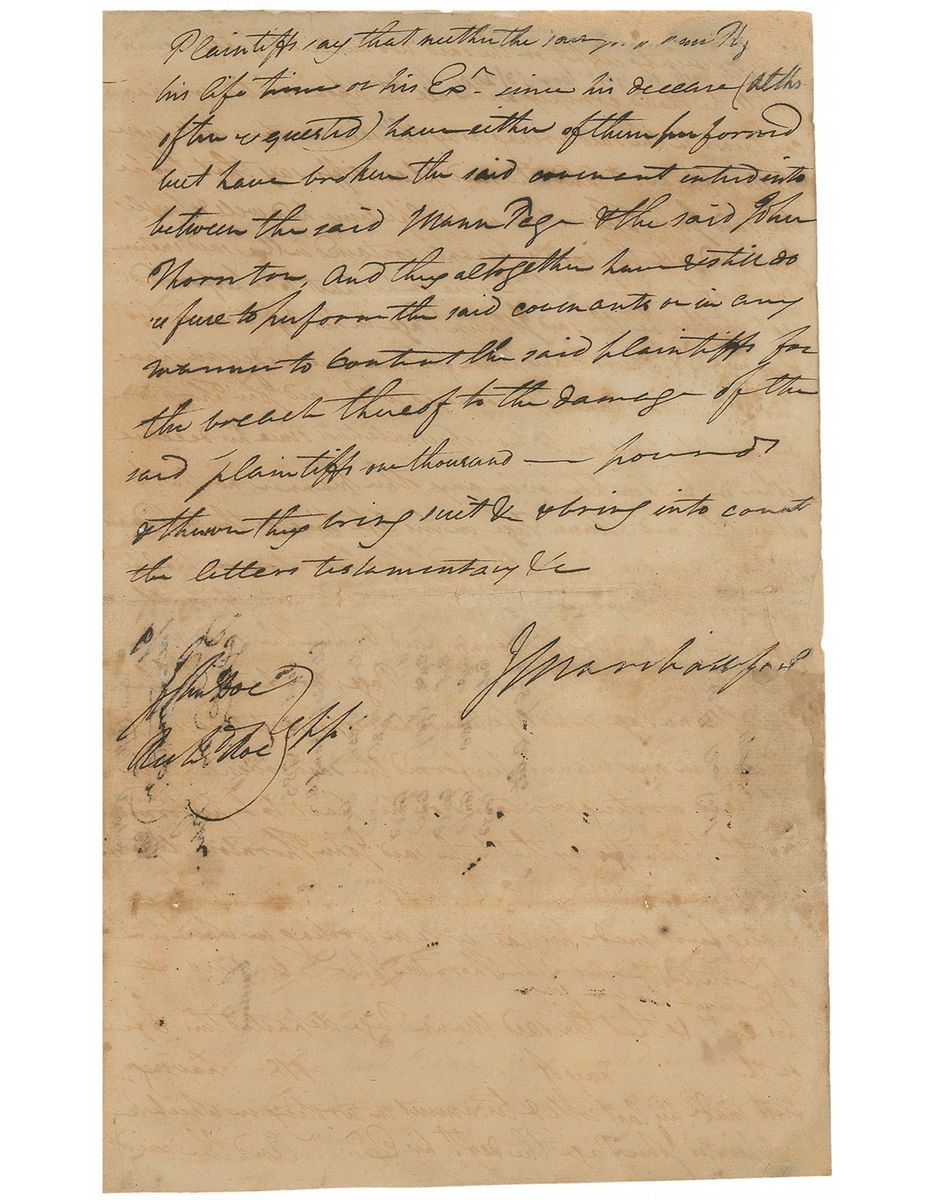 Plaintiffs say that neither the said
his life time or his Exr. since his decease (altho
often requested) have either of them performed
but have broken the said covenant entered into
between the said Mann Page & the said John
Thornton, And they altogether have & still do
refuse to perform the said covenants or in any
manner to content the said plaintiffs for
the breach thereof to the damage of the
said plaintiffs one thousand — pounds
& thereon they bring suit & & bring into court
the letters testamentary &c
J Marshall for
John Doe
Richd. Roe